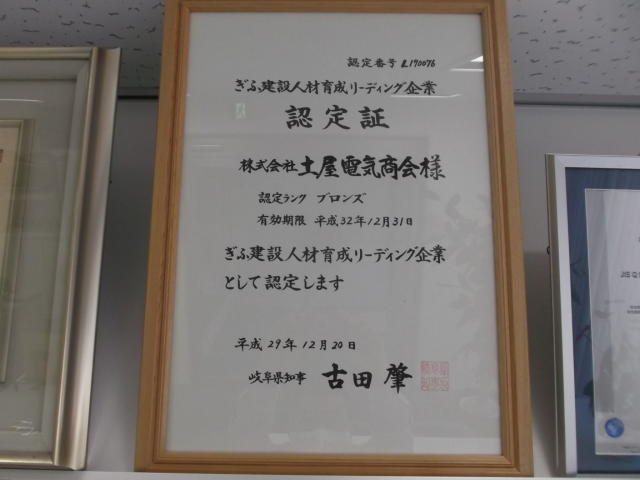 認定番号 L170076
ぎふ建設人材育成リーディング企業
認定証
株式会社土屋電気商会様
認定ランク ブロンズ
有効期限 平成32年12月31日
ぎふ建設人材育成リーディング企業
として認定します
平成29年12月20日
岐阜県知事 古田肇
JIS Q